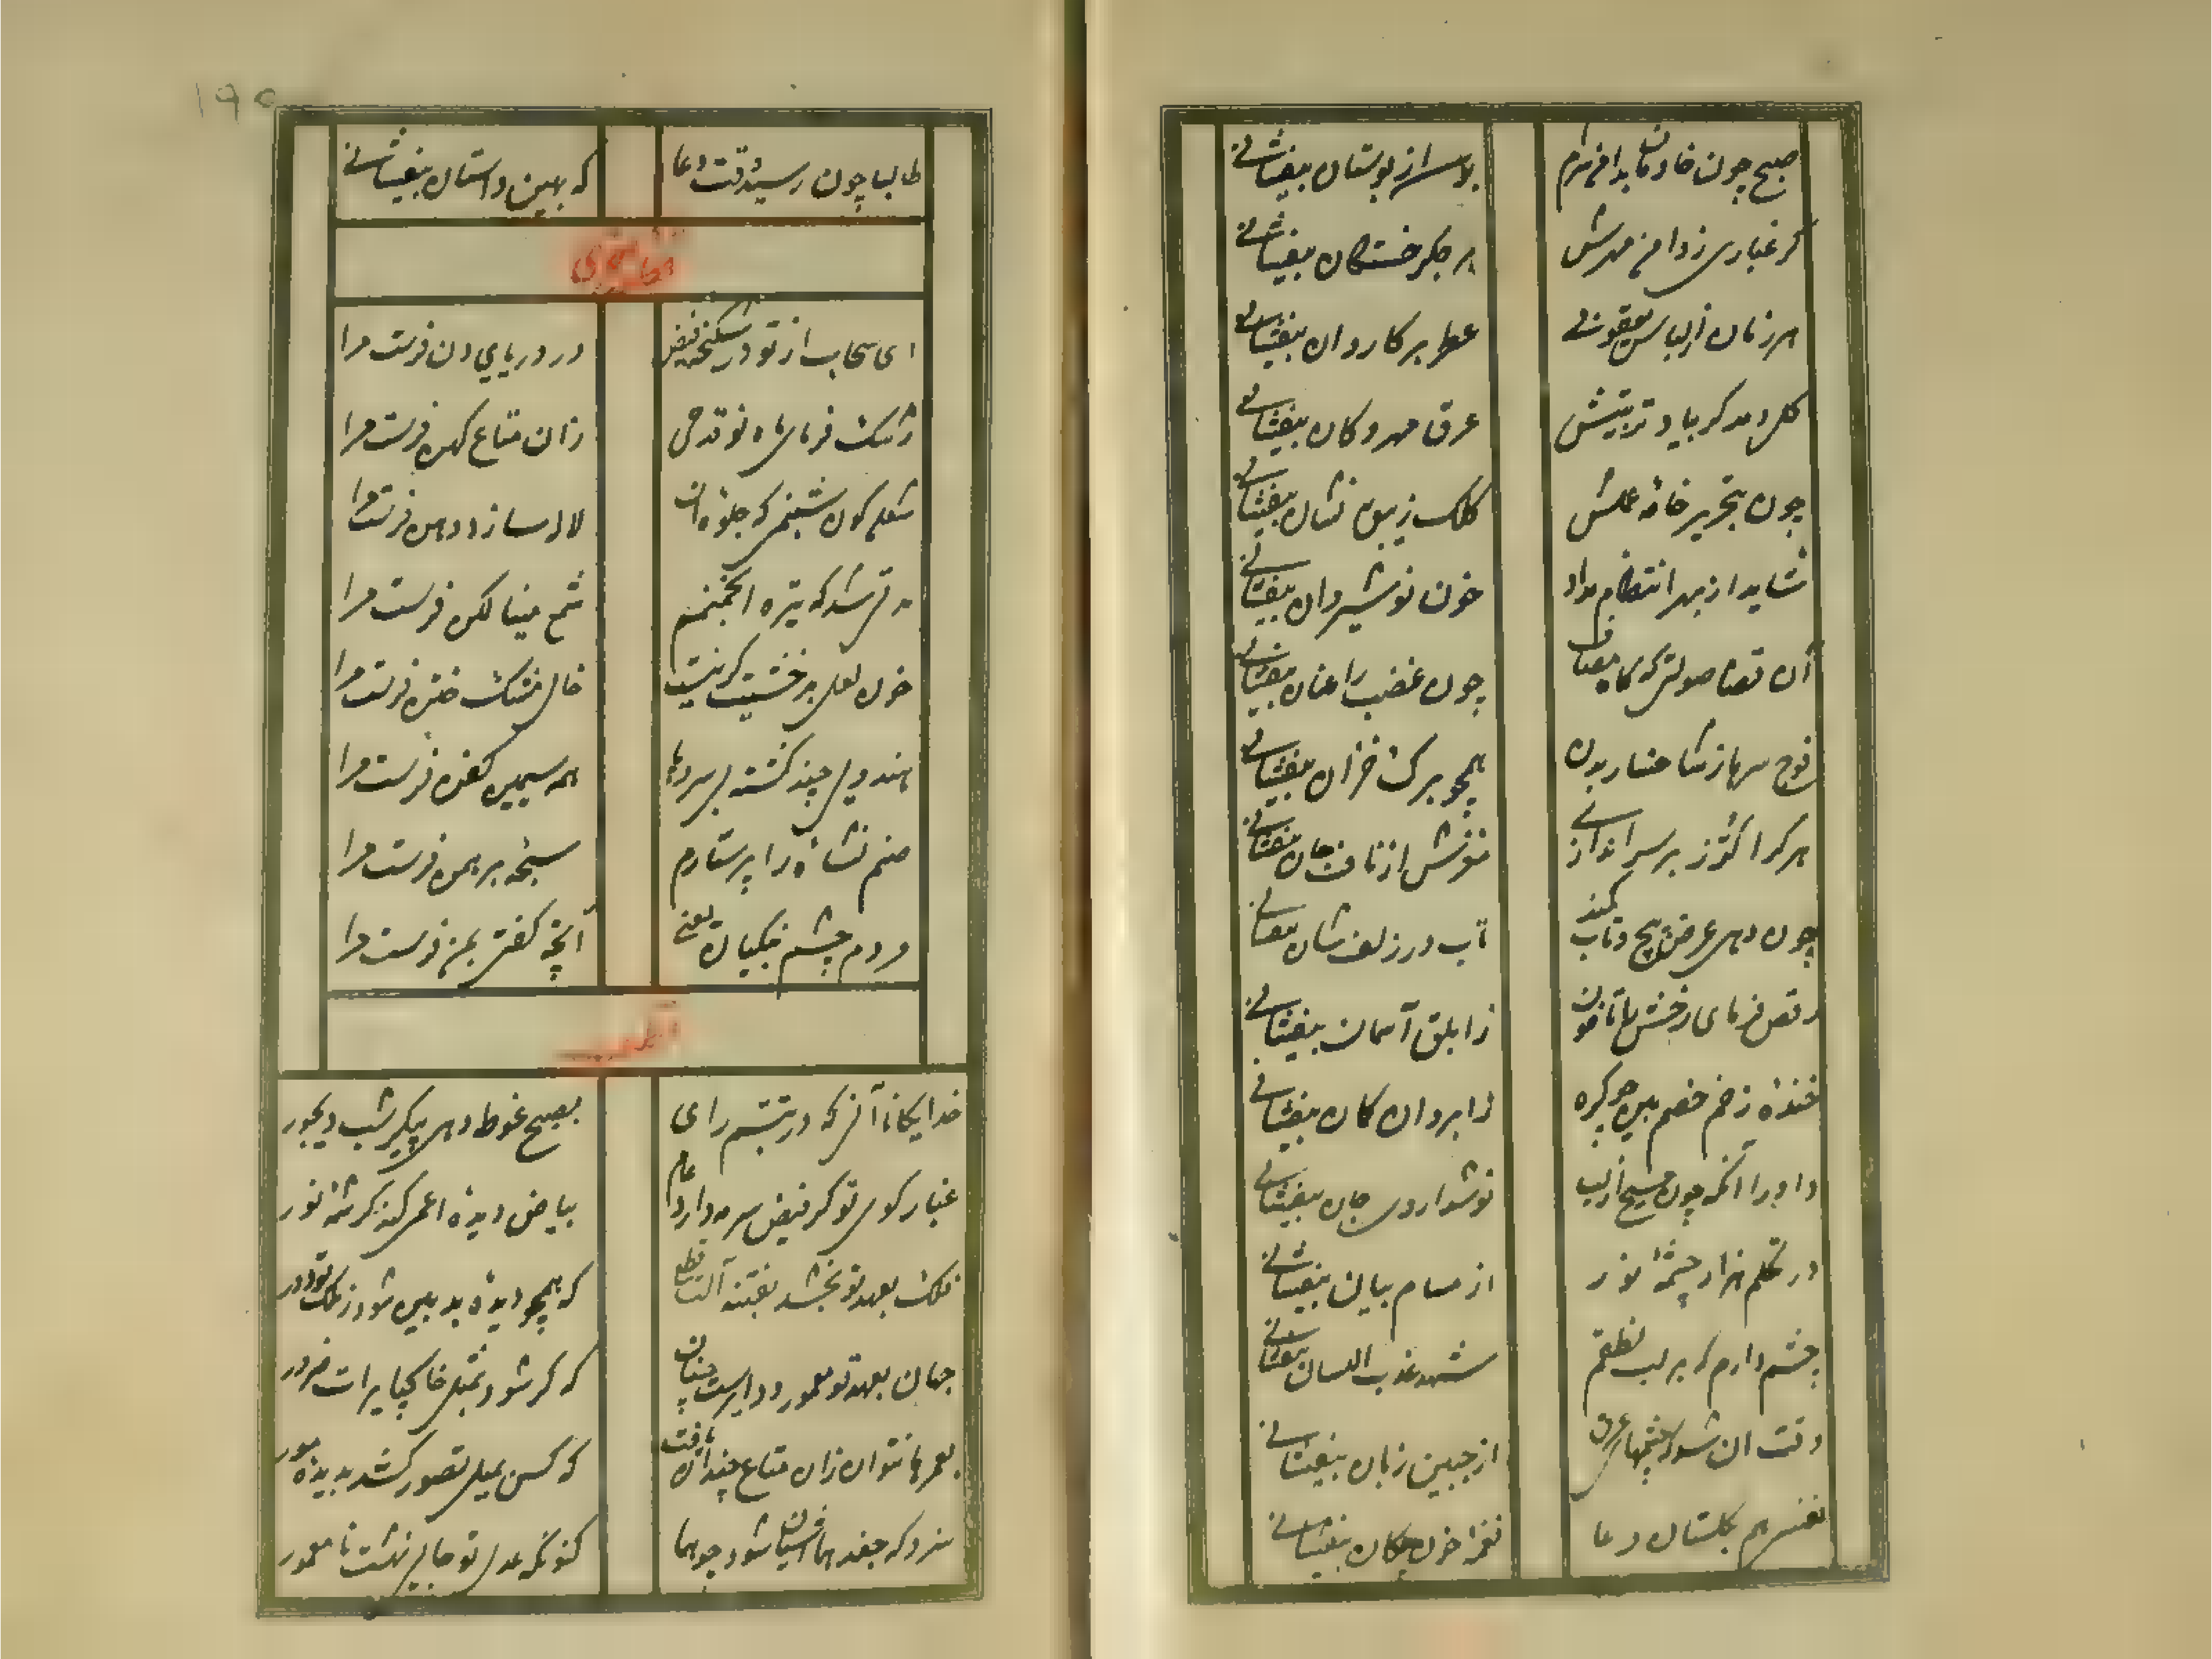 صبح چون خادمان بدامن مرام
بوسه از بوستان بیفشانی
گر غباری ز دامن مهرش
بر جگر خستگان بیفشانی
هر زمان از لباس یعقوبی
عطر بر کاروان بیفشانی
گل دمد گر بیاد تربیتش
عرق مهر و کان بیفشانی
چون بتحریر خامه عملش
کلک زیبق نشان بیفشانی
شاید از بهر انتظام مواد
خون نوشیروان بیفشانی
آن قضا صولتی که گاه مصاف
چون غضب را عنان بیفشانی
فوج سرها ز شاخسار بدن
همچو برگ خزان بیفشانی
هر کرا گرز بر سر اندازی
مغزش از ناف جان بیفشانی
چون دهی عرض پیچ و تاب کمند
تاب در زلف شان بیفشانی
رقص فرمای رخش تا ناخن
ز ابلق آسمان بیفشانی
خنده زخم خصم بین چو گره
ز ابروان کمان بیفشانی
داورا آنکه چون مسیح از لب
نوشداروی جان بیفشانی
در تکلم هزار چشمه نور
از مسام بیان بیفشانی
چشم دارم که بر لب نطقم
شهد عذب اللسان بیفشانی
وقت آن شد که چشمهای عرق
از جبین زبان بیفشانی
نفس هم بگلستان دعا
نغمه خون چکان بیفشانی
۱۹۵
طالبا چون رسید وقت دعا
که بهین داستان بیفشانی
ای سحاب از تو در شکنجه فیض
در دریای دن فرست مرا
رشک فرمای ماه نو قدحی
زان متاع کهن فرست مرا
شعله گون شبنمی که جلوه آن
لاله سازد دهن فرست مرا
مدتی شد که تیره انجمنم
شمع مینا لگن فرست مرا
خون لعل بدخشیت گر نیست
خال مشک ختن فرست مرا
هندوی چند کشته سرما
همه سیمین کفن فرست مرا
صنم نشأه را پرستارم
سبحه برهمن فرست مرا
مردم چشم زنگیان یعنی
آنچه گفتی بمن فرست مرا
خدایگانا آنی که در تبسم رای
بصبح غوطه دهی پیکر شب دیجور
غبار کوی تو گر فیض سرمه دارد عام
بیاض دیده اعمی کند کرشمه نور
فلک بعهد تو بخشد بفتنه آلت قطع
که همچو دیده بد بین شود ز ملک تو دور
جهان بعهد تو معموره داریست چنان
که گر شود بمثل خاکپا برات ضرور
بعمرها نتوان زان متاع چندان یافت
که کس بمیل تصور کشد بدیده مور
سزد که جغد هما آشیان شود چو هما
کنونکه عدل تو جایی نهشت نا معمور